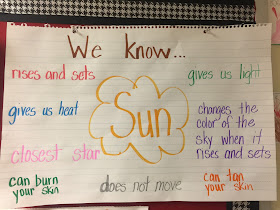 We know...
rises and sets
gives us light
gives us heat
Sun
changes the
color of the
sky when it
rises and sets
closest star
can burn
your skin
does not move
can tan
your skin